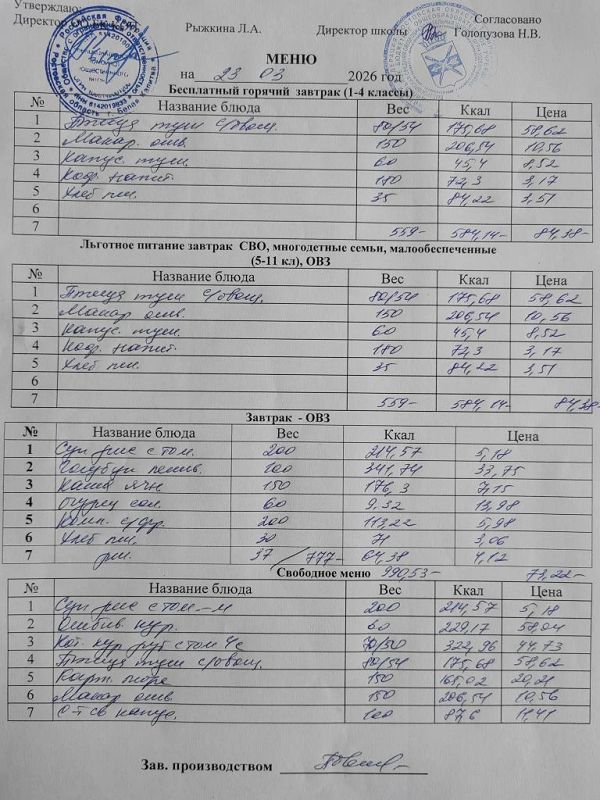 Утверждаю:
Директор
Рыжкина Л.А.
Директор школы
Согласовано
Голопузова Н.В.
МЕНЮ
на 23 03 2026 год
Бесплатный горячий завтрак (1-4 классы)
№ Название блюда Вес Ккал Цена
1 Птица туш с/овощ. 80/54 175,68 58,62
2 Макар. отв. 150 206,54 10,56
3 Капус. туш. 60 45,4 8,52
4 Коф. напит. 180 72,3 3,17
5 Хлеб пш. 35 84,22 3,51
6
7 559- 584,14- 84,38-
Льготное питание завтрак СВО, многодетные семьи, малообеспеченные
(5-11 кл), ОВЗ
№ Название блюда Вес Ккал Цена
1 Птица туш с/овощ. 80/54 175,68 58,62
2 Макар отв. 150 206,54 10,56
3 Капус. туш. 60 45,4 8,52
4 Коф. напит. 180 72,3 3,17
5 Хлеб пш. 35 84,22 3,51
6
7 559- 584,14- 84,38-
Завтрак - ОВЗ
№ Название блюда Вес Ккал Цена
1 Суп рис с том. 200 214,57 5,18
2 Голубцы ленив. 100 341,74 33,75
3 Каша ячн. 150 176,3 7,15
4 Огурец сол. 60 9,32 13,98
5 Комп. с/фр. 200 113,22 5,98
6 Хлеб пш. 30 71 3,06
7 рж. 37 / 777- 64,38 4,12
Свободное меню 990,53- 73,22-
№ Название блюда Вес Ккал Цена
1 Суп рис с том.-м 200 214,57 5,18
2 Отбив. кур. 60 229,17 58,04
3 Кот. кур руб с том 70/50 322,96 44,73
4 Птица туш с/овощ. 80/54 175,68 58,62
5 Карт. пюре 150 165,02 20,21
6 Макар отв. 150 206,54 10,56
7 С-т св капус. 100 87,6 11,41
Зав. производством